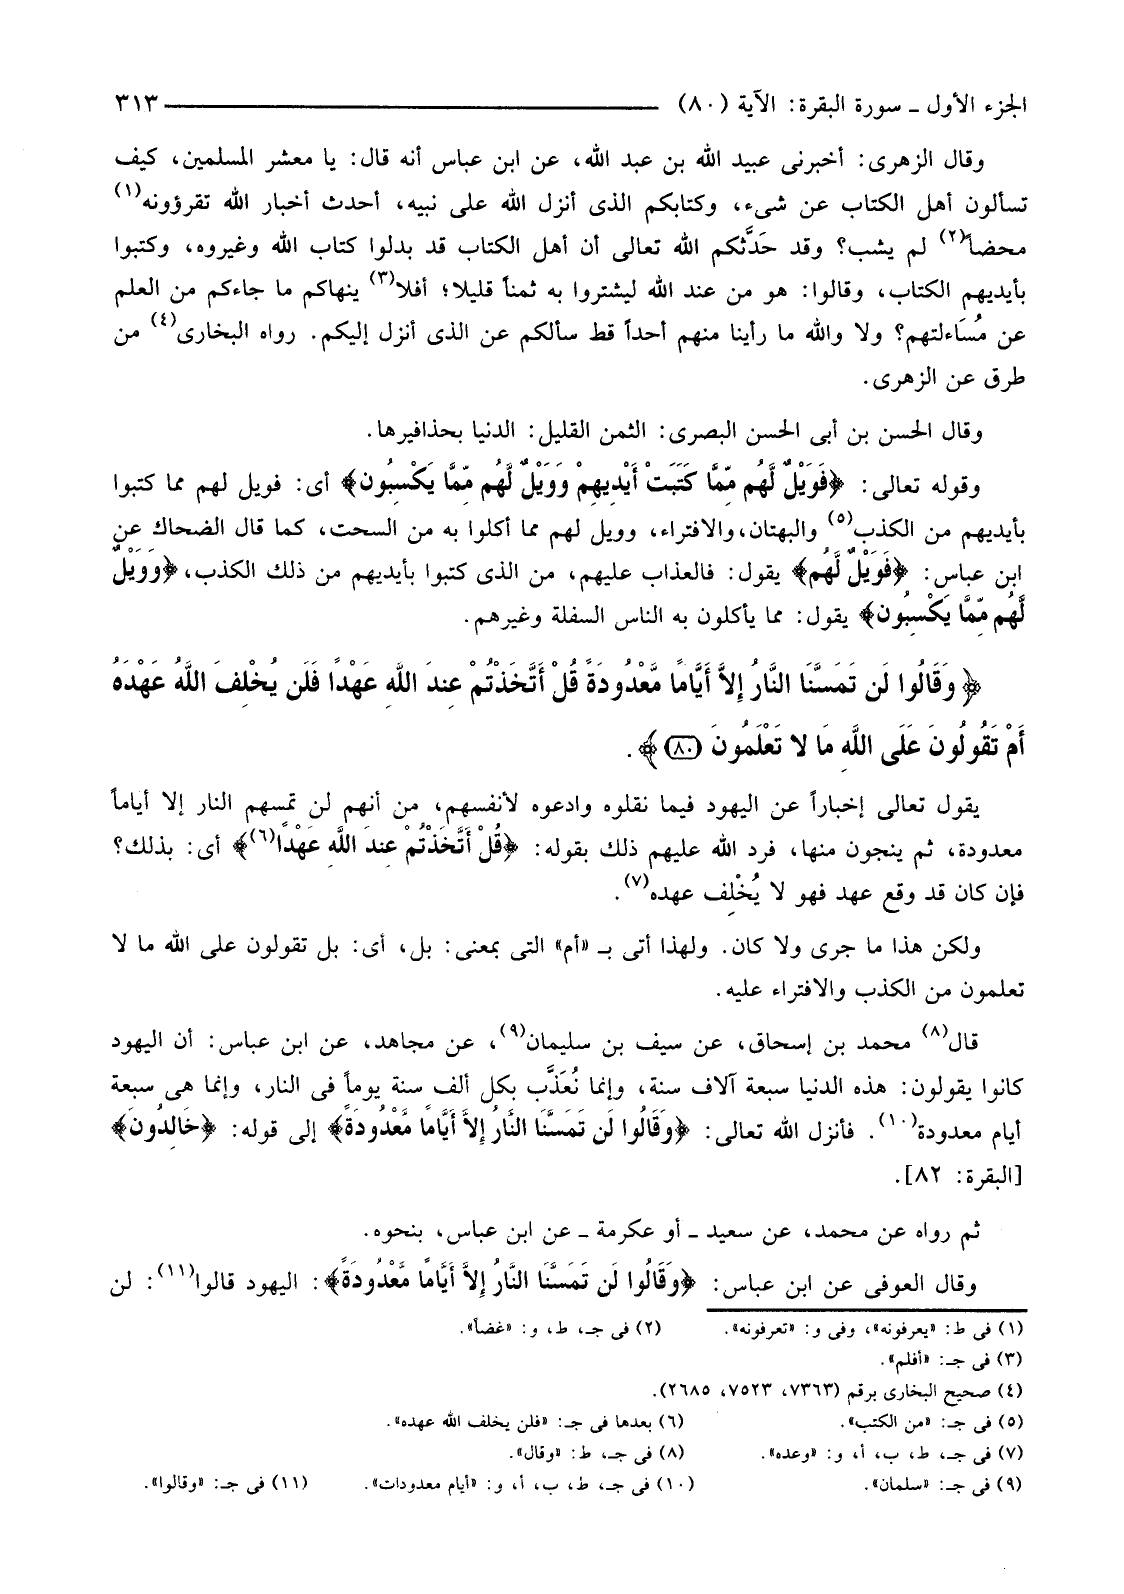 الجزء الأول ـ سورة البقرة: الآية (٨٠) ٣١٣
وقال الزهرى: أخبرنى عبيد الله بن عبد الله، عن ابن عباس أنه قال: يا معشر المسلمين، كيف
تسألون أهل الكتاب عن شىء، وكتابكم الذى أنزل الله على نبيه، أحدث أخبار الله تقرؤونه(١)
محضاً(٢) لم يشب؟ وقد حَدَّثكم الله تعالى أن أهل الكتاب قد بدلوا كتاب الله وغيروه، وكتبوا
بأيديهم الكتاب، وقالوا: هو من عند الله ليشتروا به ثمناً قليلا؛ أفلا(٣) ينهاكم ما جاءكم من العلم
عن مُسَاءلتهم؟ ولا والله ما رأينا منهم أحداً قط سألكم عن الذى أنزل إليكم. رواه البخارى(٤) من
طرق عن الزهرى.
وقال الحسن بن أبى الحسن البصرى: الثمن القليل: الدنيا بحذافيرها.
وقوله تعالى: ﴿فَوَيْلٌ لَّهُم مِّمَّا كَتَبَتْ أَيْدِيهِمْ وَوَيْلٌ لَّهُم مِّمَّا يَكْسِبُون﴾ أى: فويل لهم مما كتبوا
بأيديهم من الكذب(٥) والبهتان،والافتراء، وويل لهم مما أكلوا به من السحت، كما قال الضحاك عن
ابن عباس: ﴿فَوَيْلٌ لَّهُم﴾ يقول: فالعذاب عليهم، من الذى كتبوا بأيديهم من ذلك الكذب، ﴿وَوَيْلٌ
لَّهُم مِّمَّا يَكْسِبُون﴾ يقول: مما يأكلون به الناس السفلة وغيرهم.
﴿وَقَالُوا لَن تَمَسَّنَا النَّارُ إِلاَّ أَيَّاماً مَّعْدُودَةً قُلْ أَتَّخَذْتُمْ عِندَ اللَّهِ عَهْدًا فَلَن يُخْلِفَ اللَّهُ عَهْدَهُ
أَمْ تَقُولُونَ عَلَى اللَّهِ مَا لا تَعْلَمُونَ (٨٠)﴾.
يقول تعالى إخباراً عن اليهود فيما نقلوه وادعوه لأنفسهم، من أنهم لن تمسهم النار إلا أياماً
معدودة، ثم ينجون منها، فرد الله عليهم ذلك بقوله: ﴿قُلْ أَتَّخَذْتُمْ عِندَ اللَّهِ عَهْدًا(٦)﴾ أى: بذلك؟
فإن كان قد وقع عهد فهو لا يُخْلِف عهده(٧).
ولكن هذا ما جرى ولا كان. ولهذا أتى بـ «أم» التى بمعنى: بل، أى: بل تقولون على الله ما لا
تعلمون من الكذب والافتراء عليه.
قال(٨) محمد بن إسحاق، عن سيف بن سليمان(٩)، عن مجاهد، عن ابن عباس: أن اليهود
كانوا يقولون: هذه الدنيا سبعة آلاف سنة، وإنما نُعَذَّب بكل ألف سنة يوماً فى النار، وإنما هى سبعة
أيام معدودة(١٠). فأنزل الله تعالى: ﴿وَقَالُوا لَن تَمَسَّنَا النَّارُ إِلاَّ أَيَّاماً مَّعْدُودَةً﴾ إلى قوله: ﴿خَالِدُونَ﴾
[البقرة: ٨٢].
ثم رواه عن محمد، عن سعيد ـ أو عكرمة ـ عن ابن عباس، بنحوه.
وقال العوفى عن ابن عباس: ﴿وَقَالُوا لَن تَمَسَّنَا النَّارُ إِلاَّ أَيَّامًا مَّعْدُودَةً﴾: اليهود قالوا(١١): لن
(١) فى ط: «يعرفونه»، وفى و: «تعرفونه». (٢) فى جـ، ط، و: «غضاً».
(٣) فى جـ: «أفلم».
(٤) صحيح البخارى برقم (٧٣٦٣، ٧٥٢٣، ٢٦٨٥).
(٥) فى جـ: «من الكتب». (٦) بعدها فى جـ: «فلن يخلف الله عهده».
(٧) فى جـ، ط، ب، أ، و: «وعده». (٨) فى جـ، ط: «وقال».
(٩) فى جـ: «سلمان». (١٠) فى جـ، ط، ب، أ، و: «أيام معدودات». (١١) فى جـ: «وقالوا».